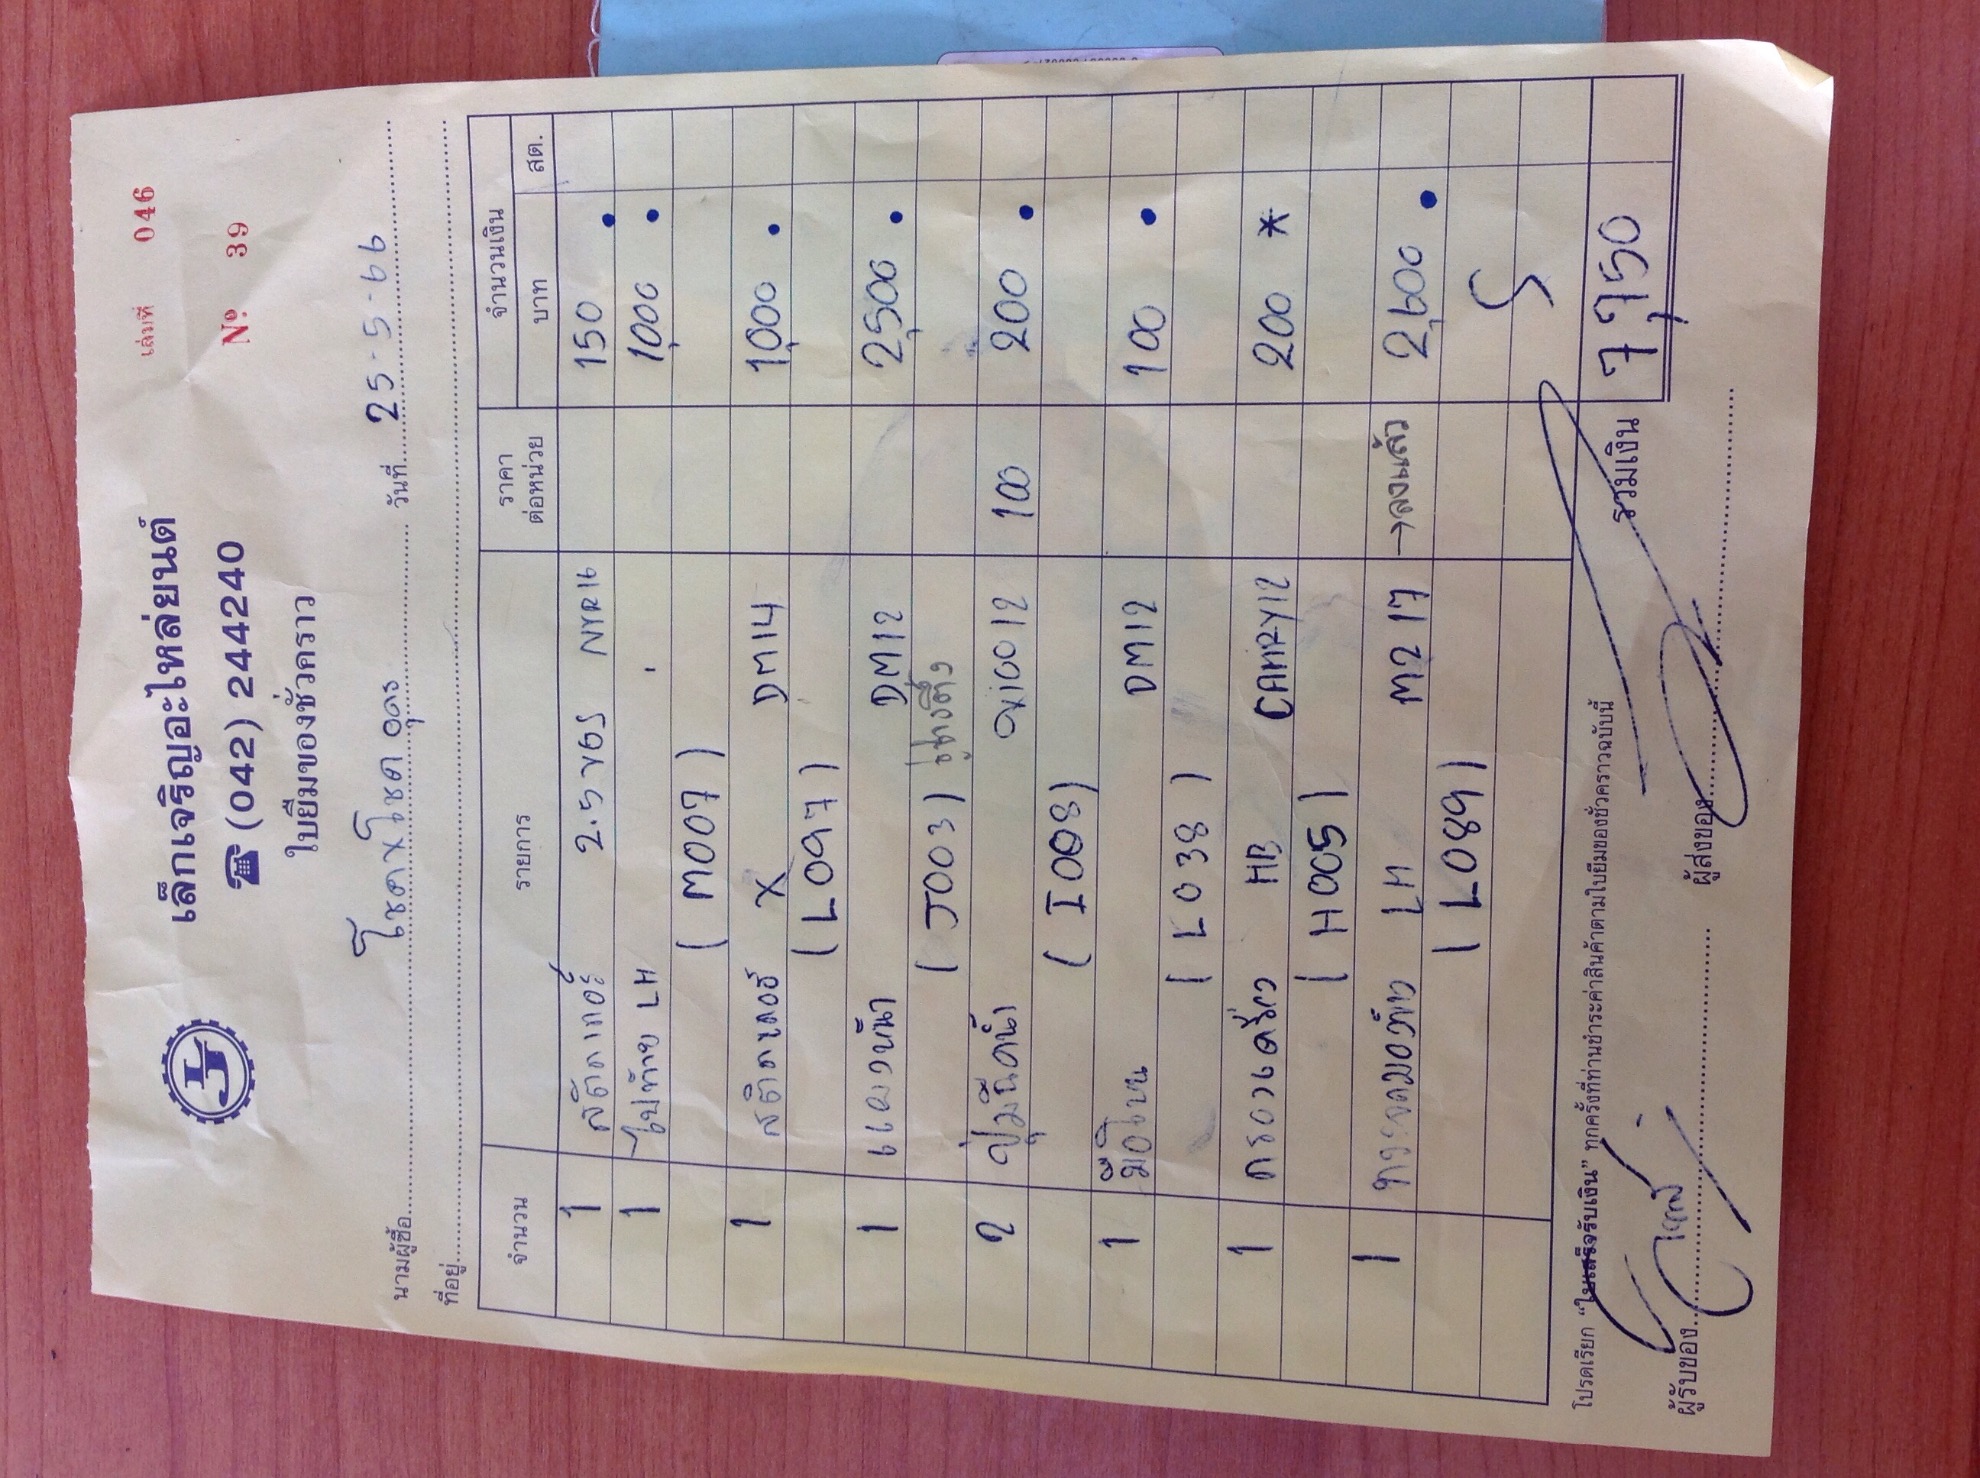 เล่มที่ 046
เล็กเจริญอะไหล่ยนต์
☎ (042) 244240
Nº 39
ใบยืมของชั่วคราว
นามผู้ซื้อ โชคxโชค อุดร วันที่ 25-5-66
ที่อยู่
จำนวน รายการ ราคาต่อหน่วย จำนวนเงิน
บาท สต.
1 สติกเกอร์ 2.5 VGS NYR16 150
1 ไฟท้าย LH 1,000
(M007)
1 สติกเกอร์ X DM14 1,000
(L097)
1 แผงหน้า DM12 2,500
(J003)
2 100 200
(I008)
1 มือโหน DM12 100
(L038)
1 กรองเครื่อง HB CAMRY12 200 *
(H005)
1 กระจกมองข้าง LH M2 17 → ลงแล้ว 2,600
(L089)
รวมเงิน 7,750
โปรดเรียก "ใบเสร็จรับเงิน" ทุกครั้งที่ท่านชำระค่าสินค้าตามใบยืมของชั่วคราวฉบับนี้
ผู้รับของ ผู้ส่งของ